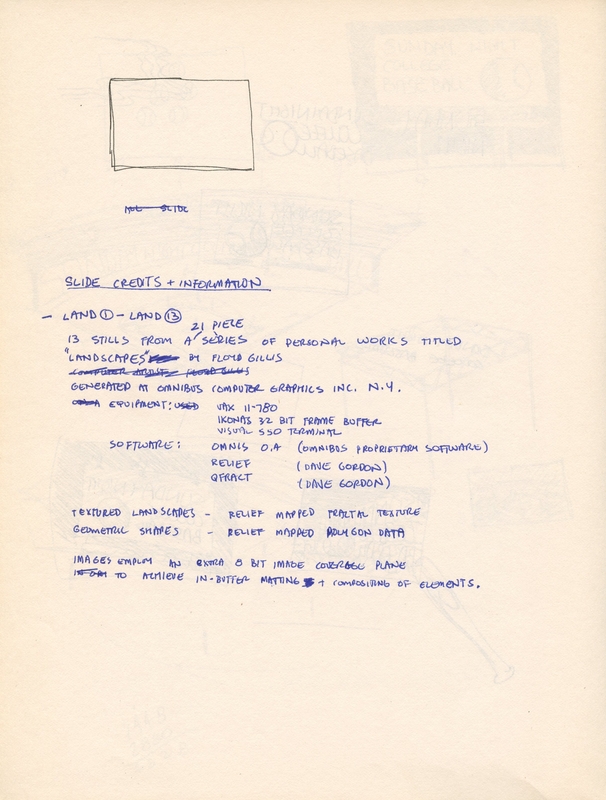 SLIDE CREDITS + INFORMATION
- LAND ① - LAND ⑬
21 PIECE
13 STILLS FROM A SERIES OF PERSONAL WORKS TITLED
"LANDSCAPES" BY FLOYD GILLIS
COMPUTER ARTISTS FLOYD GILLIS
GENERATED AT OMNIBUS COMPUTER GRAPHICS INC. N.Y.
EQUIPMENT: USED VAX 11-780
IKONAS 32 BIT FRAME BUFFER
VISUAL 550 TERMINAL
SOFTWARE: OMNIS O.A (OMNIBUS PROPRIETARY SOFTWARE)
RELIEF (DAVE GORDON)
QFRACT (DAVE GORDON)
TEXTURED LANDSCAPES - RELIEF MAPPED FRACTAL TEXTURE
GEOMETRIC SHAPES - RELIEF MAPPED POLYGON DATA
IMAGES EMPLOY AN EXTRA 8 BIT IMAGE COVERAGE PLANE
TO ACHIEVE IN-BUFFER MATTING + COMPOSITING OF ELEMENTS.